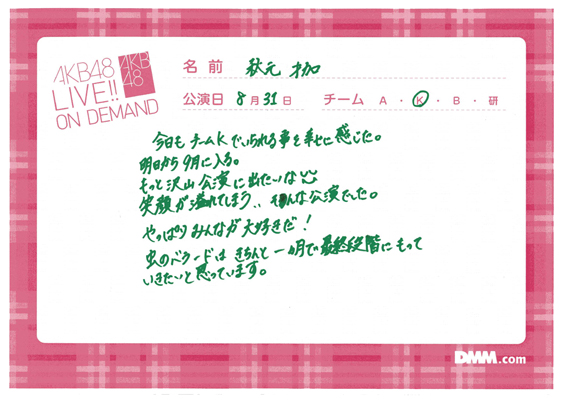 AKB48
LIVE!!
ON DEMAND
AKB
48
名前 秋元 才加
公演日 8月31日 チーム A・K・B・研
今日もチームKでいられる事を幸せに感じた。
明日から9月に入る。
もっと沢山公演に出たいな
笑顔が溢れてしまう、そんな公演でした。
やっぱりみんなが大好きだ!
虫のバラードはきちんと一ヵ月で最終段階にもって
いきたいと思っています。
DMM.com